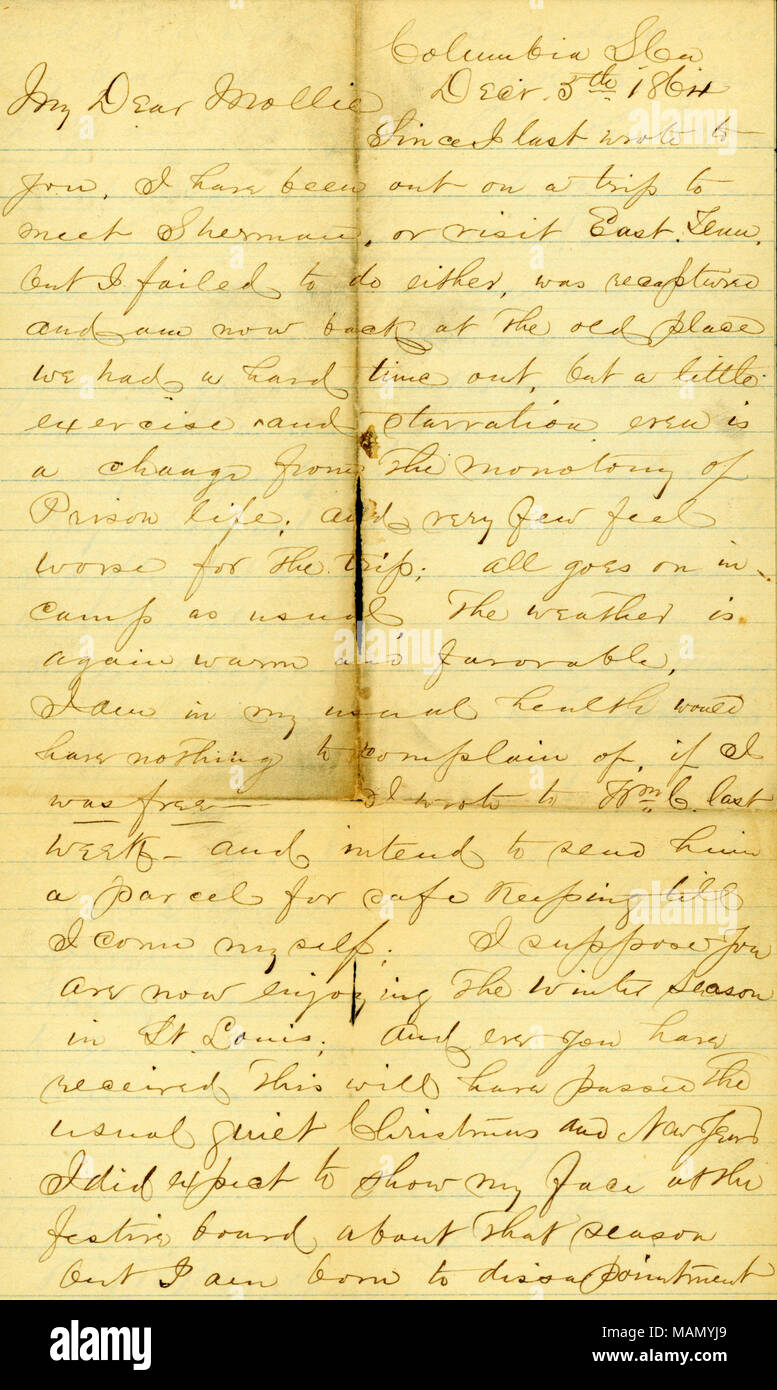 Columbia S Ca
Decr. 5th 1864
My Dear Mollie
Since I last wrote to
you, I have been out on a trip to
meet Sherman, or visit East. Tenn.
but I failed to do either, was recaptured
and am now back at the old place
we had a hard time out, but a little
exercise and starvation even is
a change from the monotony of
Prison life, and very few feel
worse for the trip; all goes on in
camp as usual, the weather is
again warm and favorable,
I am in my usual health would
have nothing to complain of, if I
was free— I wrote to Wm. C. last
week— and intend to send him
a parcel for safe keeping till
I come my self; I suppose you
are now enjoying the winter season
in St. Louis; and ever you have
received this will have passed the
usual quiet Christmas and New Years
I did expect to show my face at the
festive board about that season
but I am born to dissapointment
alamy
alamy
Image ID: MAMYJ9
www.alamy.com